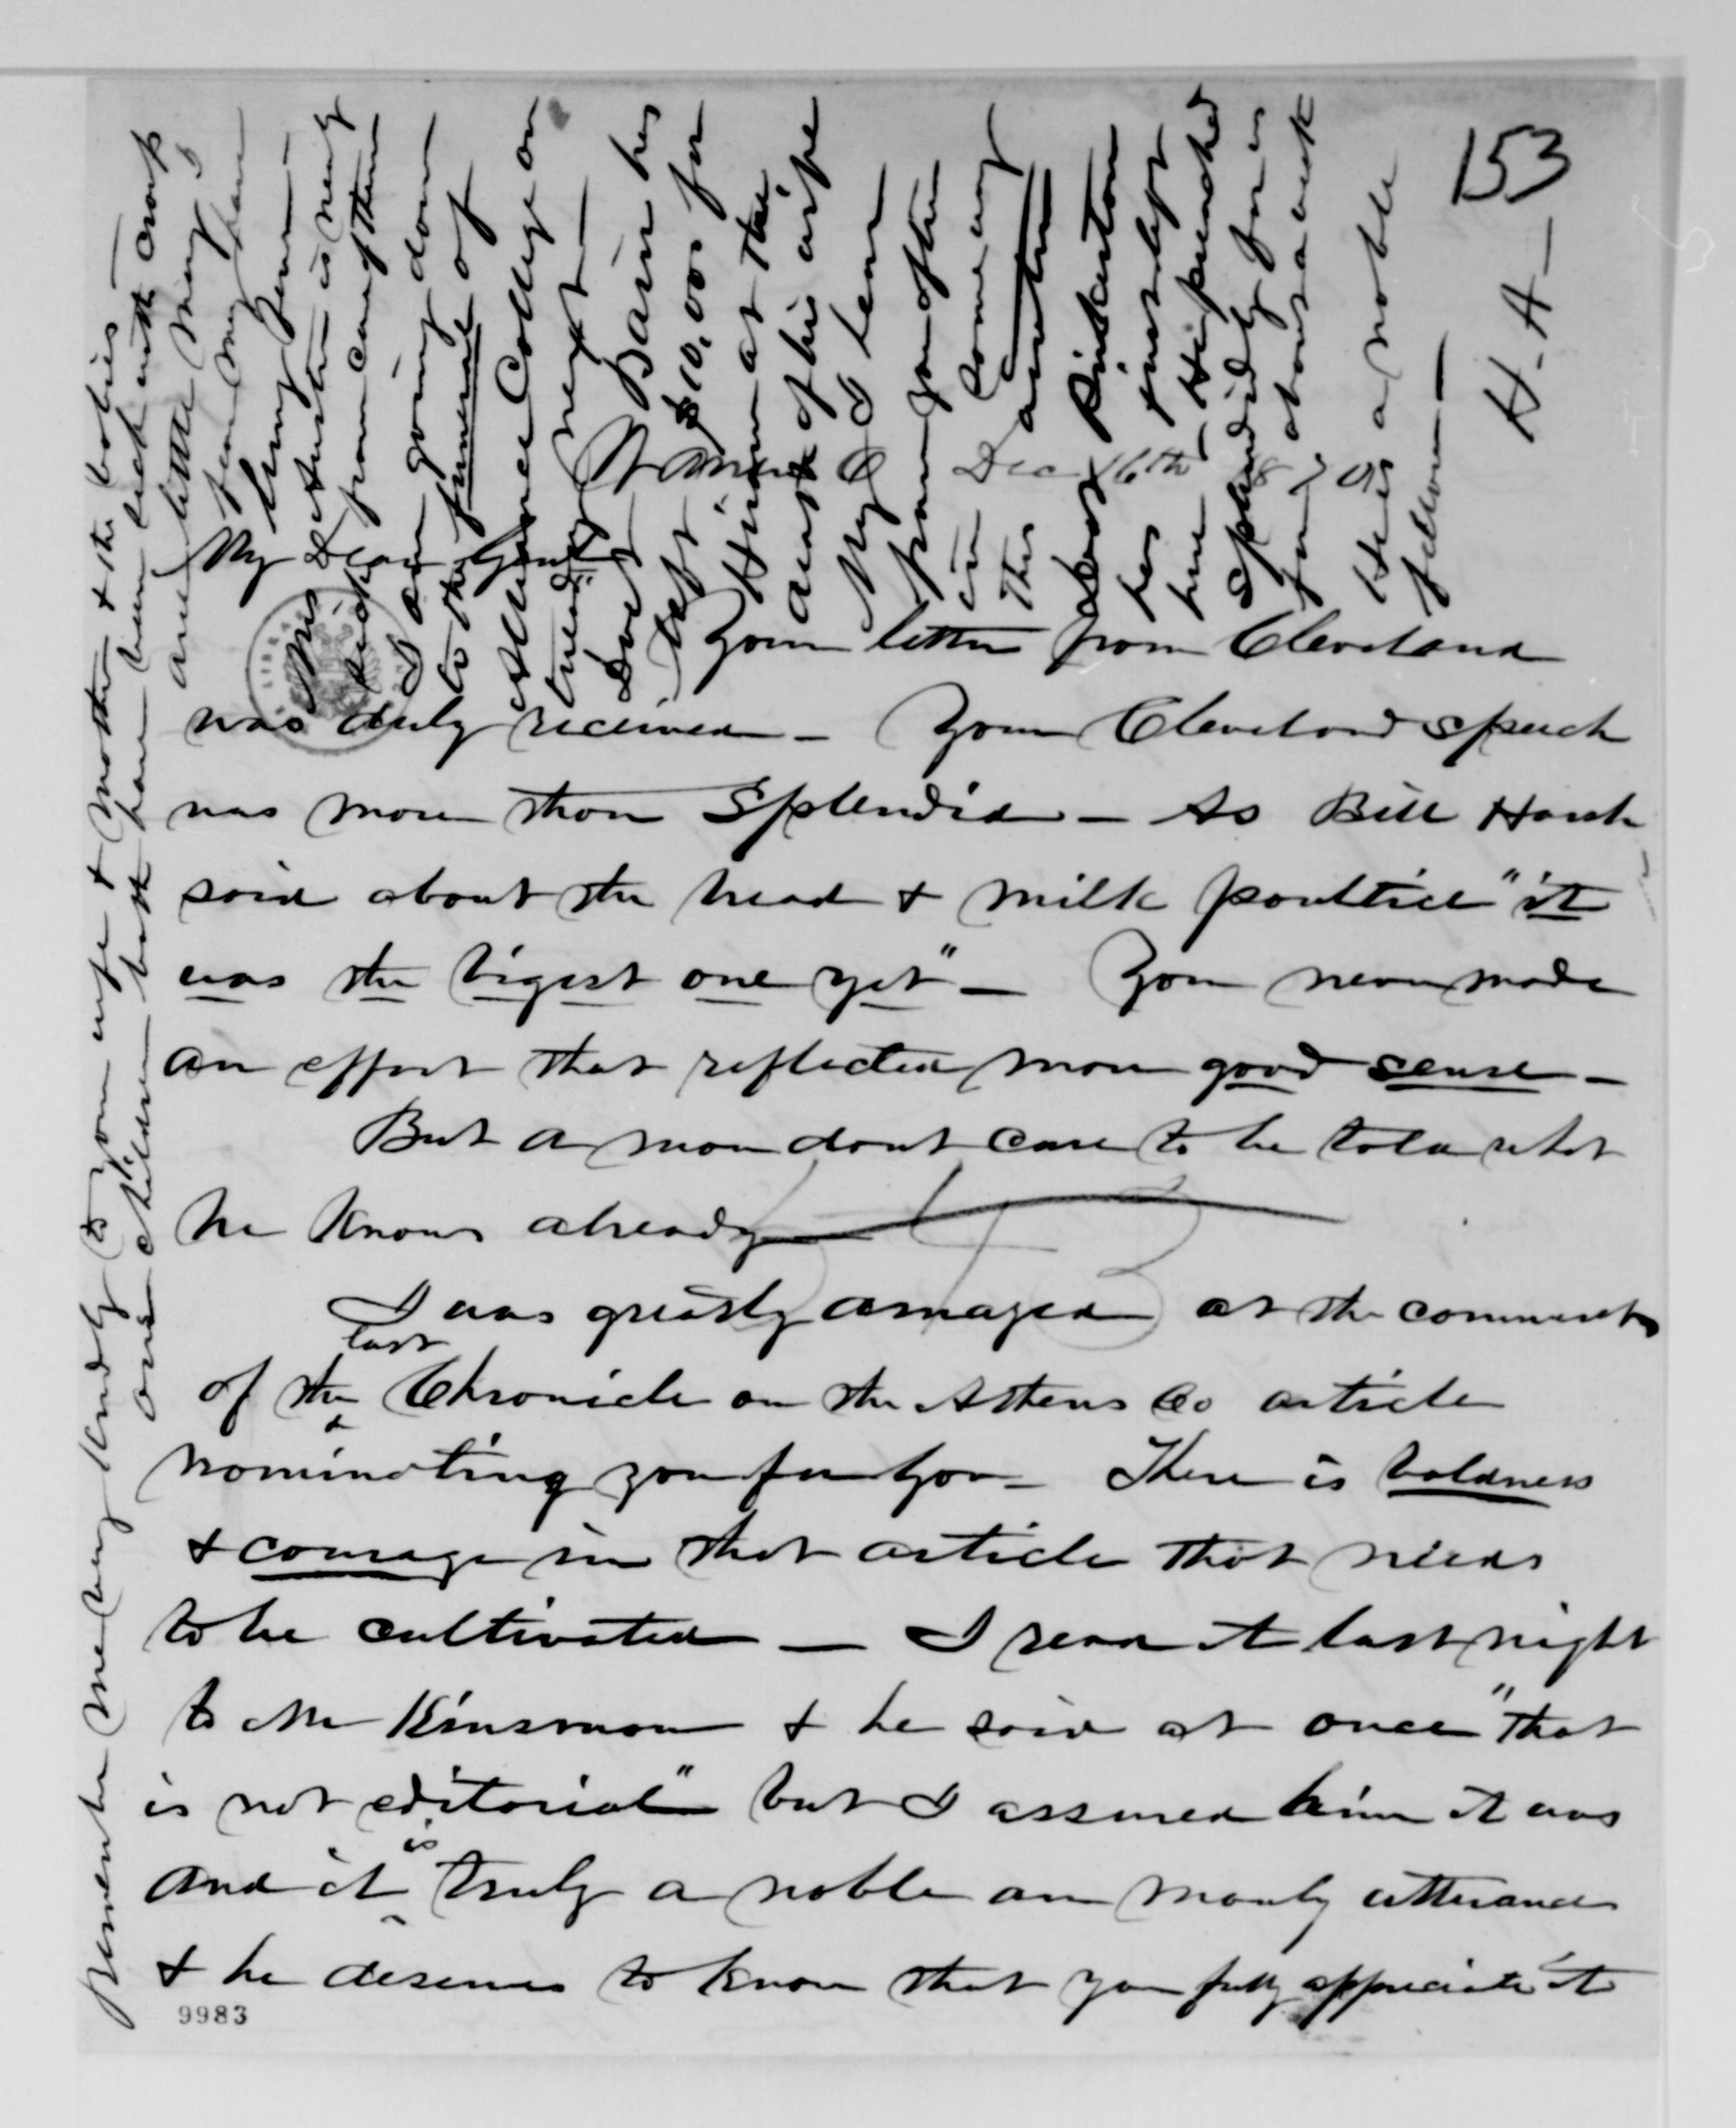 153
Warren O Dec 16th 1870
My Dear Genl
Your letter from Cleveland
was duly received - Your Cleveland speech
was more than Splendid - As Bill Harsh
said about the bread & milk poultice "it
was the bigest one yet" - You never made
an effort that reflected more good sense -
But a man dont care to be told what
he knows already
I was greatly amazed at the comments
of the last Chronicle on the Athens Co article
nominating you for Gov - There is boldness
& courage in that article that needs
to be cultivated - I read it last night
to Mr Kinsman & he said at once "that
is not editorial" but I assured him it was
and it is truly a noble an manly utterance
& he deserves to know that you fully appreciate it
9983
Remember me very kindly to your wife & Mother & the babies -
our children both have been sick with croup
and little Mary
from
lung fever -
Mrs Austin is nearly
sick from care of them
I am going down
to the funeral of
Alliance College on
tuesday next -
Dr Bain has
left $10,000 for
Hiram at the
death of his wife
My I hear
from you often
in some way
This
Doct Pinkerton
has just left
here - He preached
Splendidly for us
for about a week
He is a noble
fellow -
H - A -